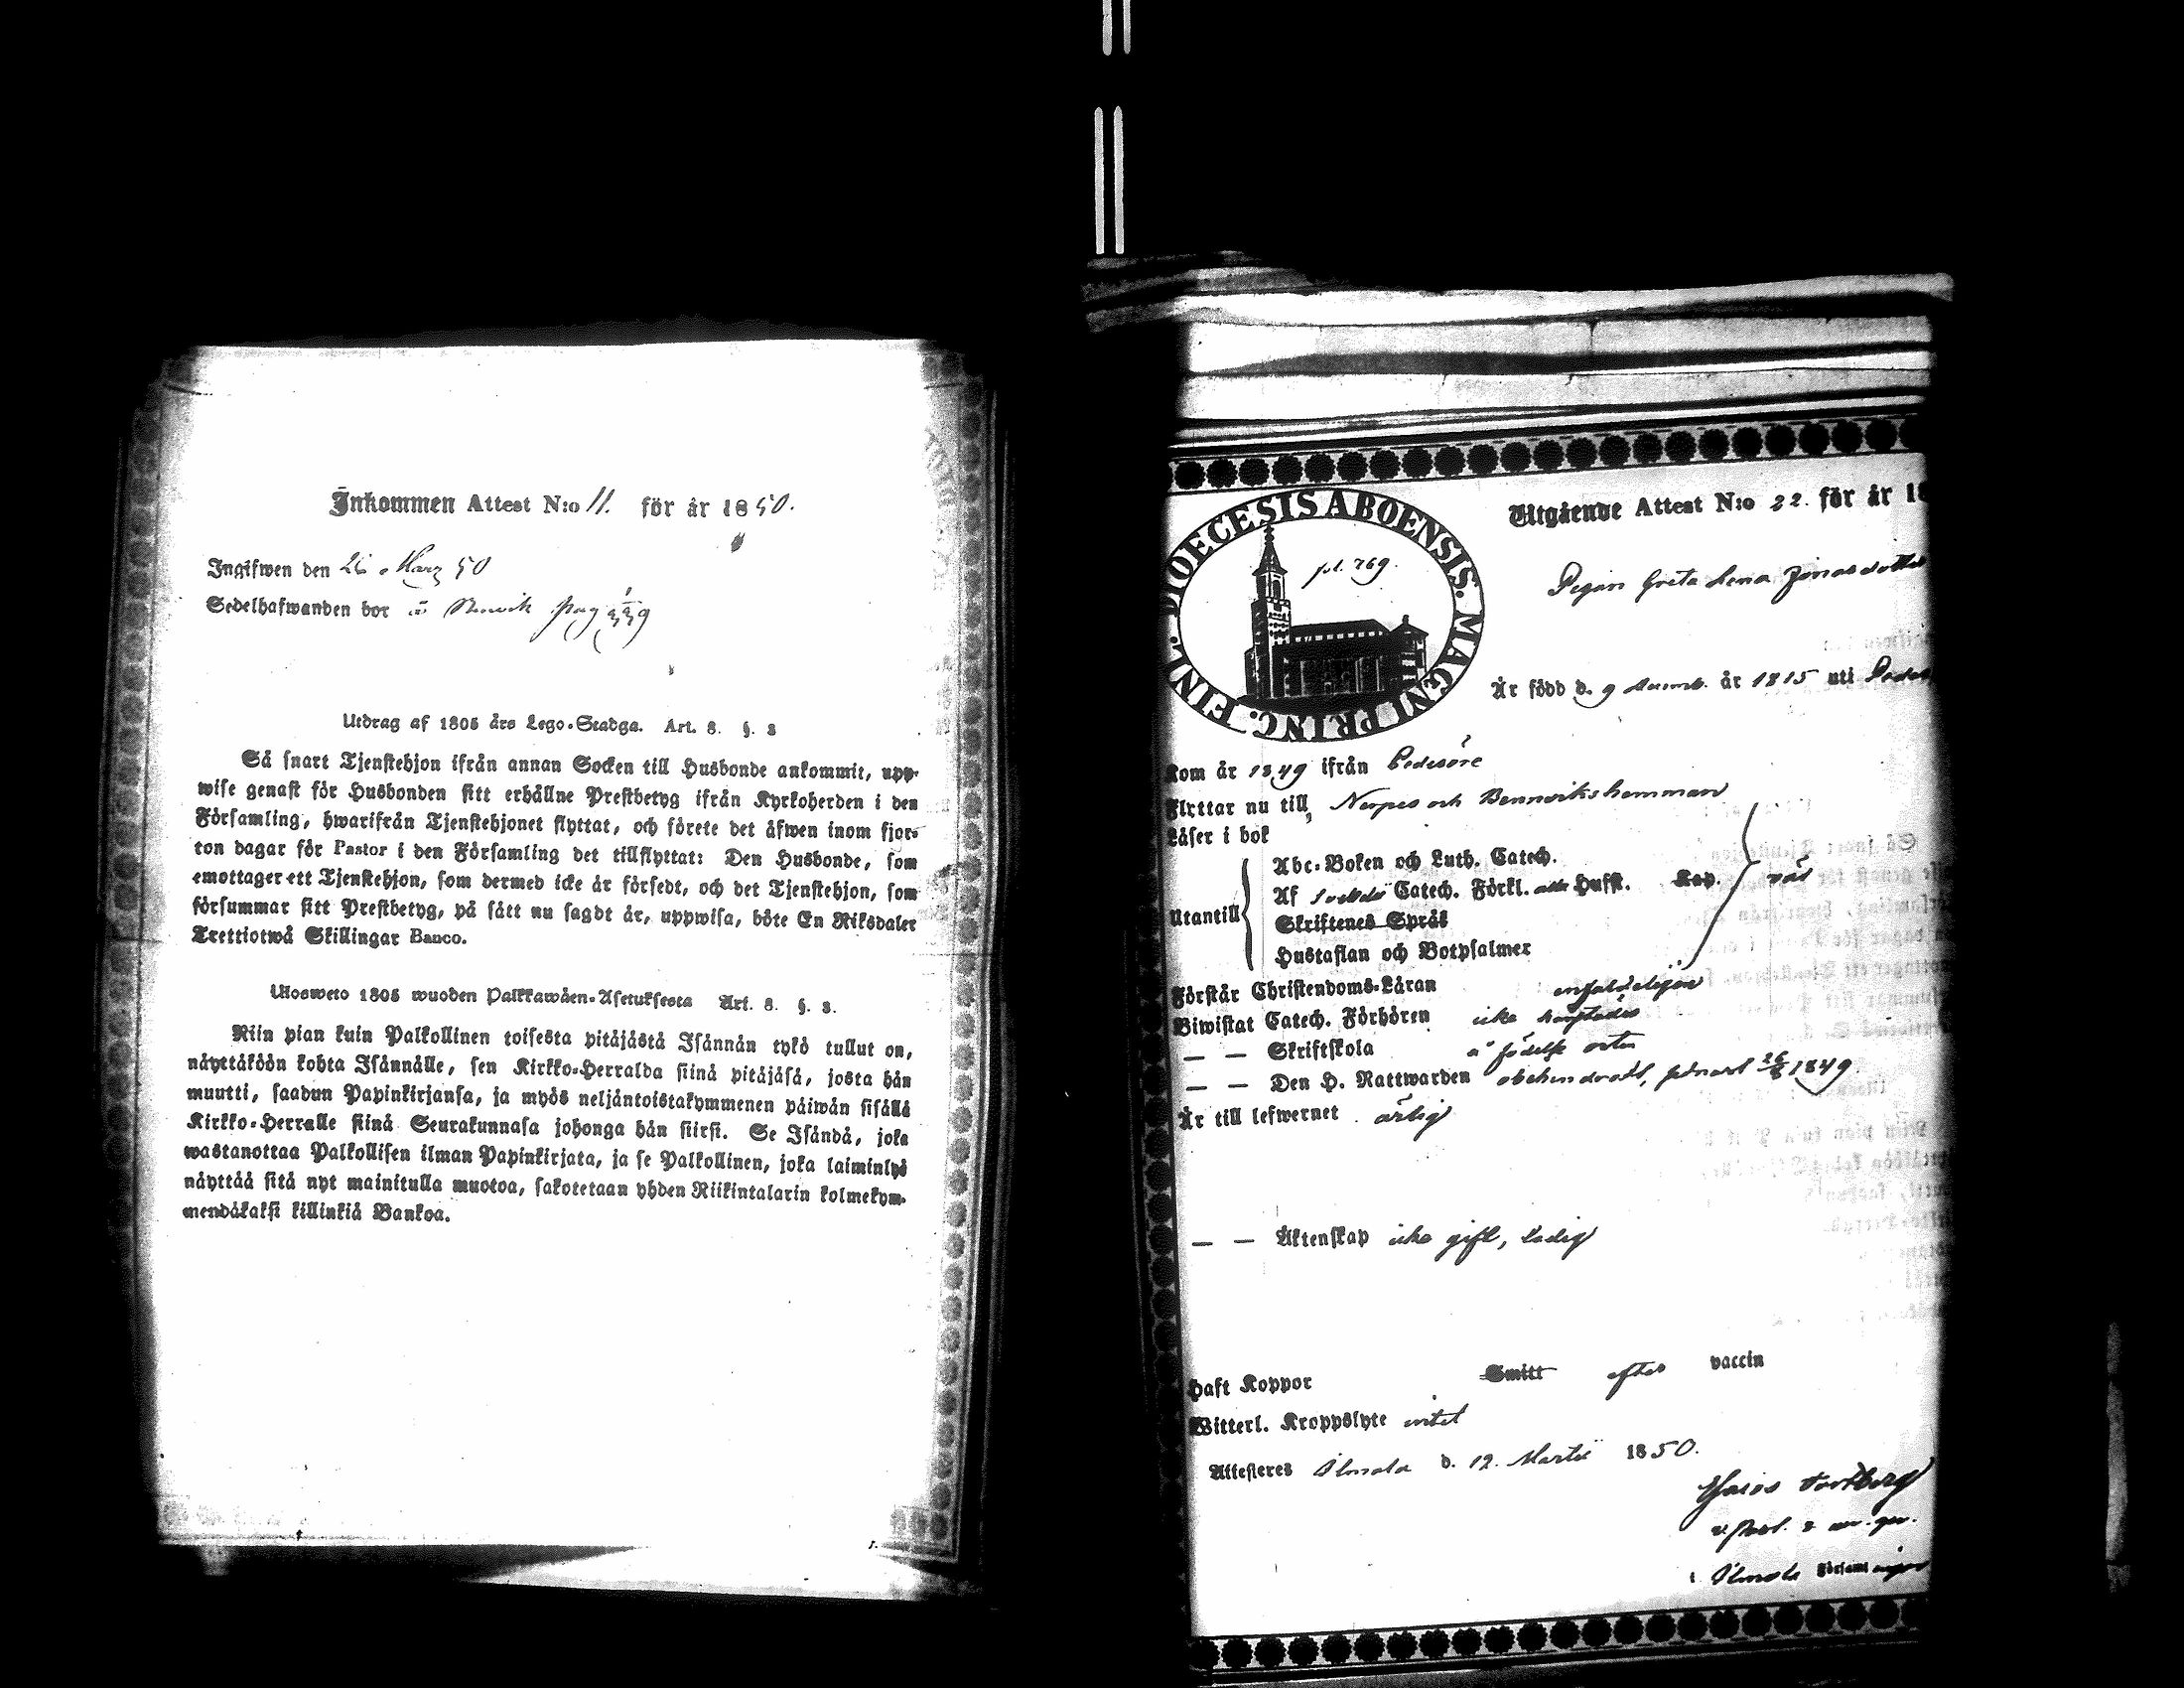 Inkommen Attest N:o 11. för år 1850.
Ingifwen den 26 Marz 50
Sedelhafwanden bor å Benvik pag
Utdrag af 1805 års Lego-Stadga. Art. 8. §. 3
Så snart Tjenstehjon ifrån annan Socken till Husbonde ankommit, upp-
wise genast för Husbonden sitt erhållne Prestbetyg ifrån Kyrkoherden i den
Församling, hwarifrån Tjenstehjonet flyttat, och förete det äfwen inom fjor-
ton dagar för Pastor i den Församling det tillflyttat: Den Husbonde, som
emottager ett Tjenstehjon, som dermed icke är försedt, och det Tjenstehjon, som
försummar sitt Prestbetyg, på sätt nu sagdt är, uppwisa, böte En Riksdaler
Trettiotwå Skillingar Banco.
Ulosweto 1805 wuoden Palkkawäen-Asetuksesta Art. 8. §. 3.
Niin pian kuin Palkollinen toisesta pitäjästä Isännän tykö tullut on,
näyttäköön kohta Isännälle, sen Kirkko-Herralda siinä pitäjäsä, josta hän
muutti, saadun Papinkirjansa, ja myös neljäntoistakymmenen päiwän sisällä
Kirkko-Herralle siinä Seurakunnasa johonga hän siirsi. Se Isändä, joka
wastanottaa Palkollisen ilman Papinkirjata, ja se Palkollinen, joka laiminlyö
näyttää sitä nyt mainitulla muotoa, sakotetaan yhden Riikintalarin kolmekym-
mendäkaksi killinkiä Bankoa.
DIOECESIS ABOENSIS. MAGNI PRINC. FINL.
pl. 769.
Utgående Attest N:o 22. för år 18
Pigan Greta Lena Jonasdotter
Är född d. 9 år 1815 uti Peder
Kom år 1849 ifrån Pedersöre
Flyttar nu till, Nerpes och Bennvikshemman
Läser i bok
Abc-Boken och Luth. Catech.
Af Svebeli Catech. Förkl. Husft. Kap. nås
Utantill
Skriftenes Språk
Hustaflan och Botpsalmer
Förstår Christendoms-Läran enfaldeligen
Biwistat Catech. Förhören icke
— — Skriftskola å födelse orten
— — Den H. Nattwarden obehindradt, 26/8 1849.
Är till lefwernet ärlig
— — Äktenskap icke gift, ledig
Haft Koppor Smitt efter vaccin
Witterl. Kroppslyte intet
Attesteres Ilmola d. 12. Martii 1850.
v. Past.
i Ilmola Församlingar